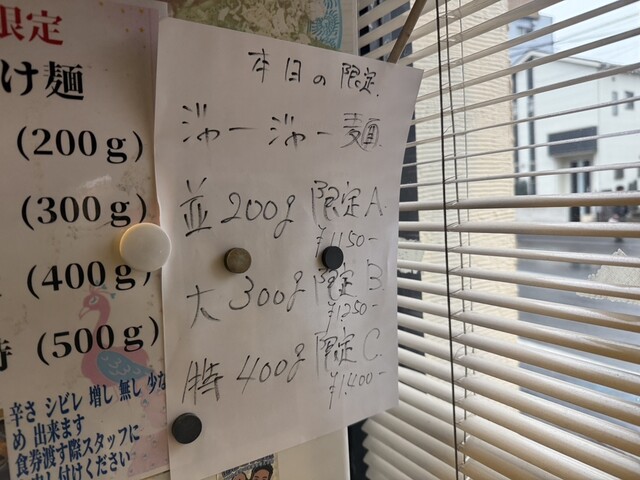 限定
け麺
(200g)
(300g)
(400g)
(500g)
辛さ シビレ 増し 無し 少な
め 出来ます
食券渡す際スタッフに
し付けください
本日の限定
ジャージャー麺
並 200g 限定A
¥1150-
大 300g 限定B
¥1250-
特 400g 限定C
¥1,400-